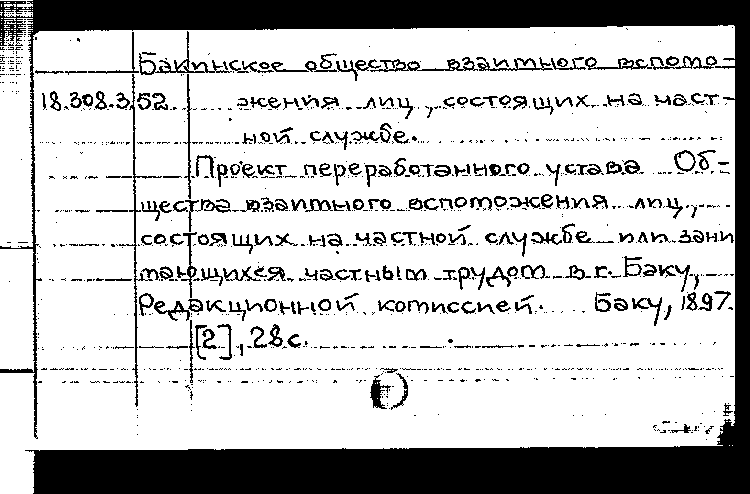 Бакинское общество взаимного вспомо-
18.308.3.52 жения лиц, состоящих на част-
ной службе.
Проект переработанного устава Об-
щества взаимного вспоможения лиц,
состоящих на частной службе или зани
мающихся частным трудом в г. Баку,
Редакционной комиссией. Баку, 1897.
[2], 28 с.